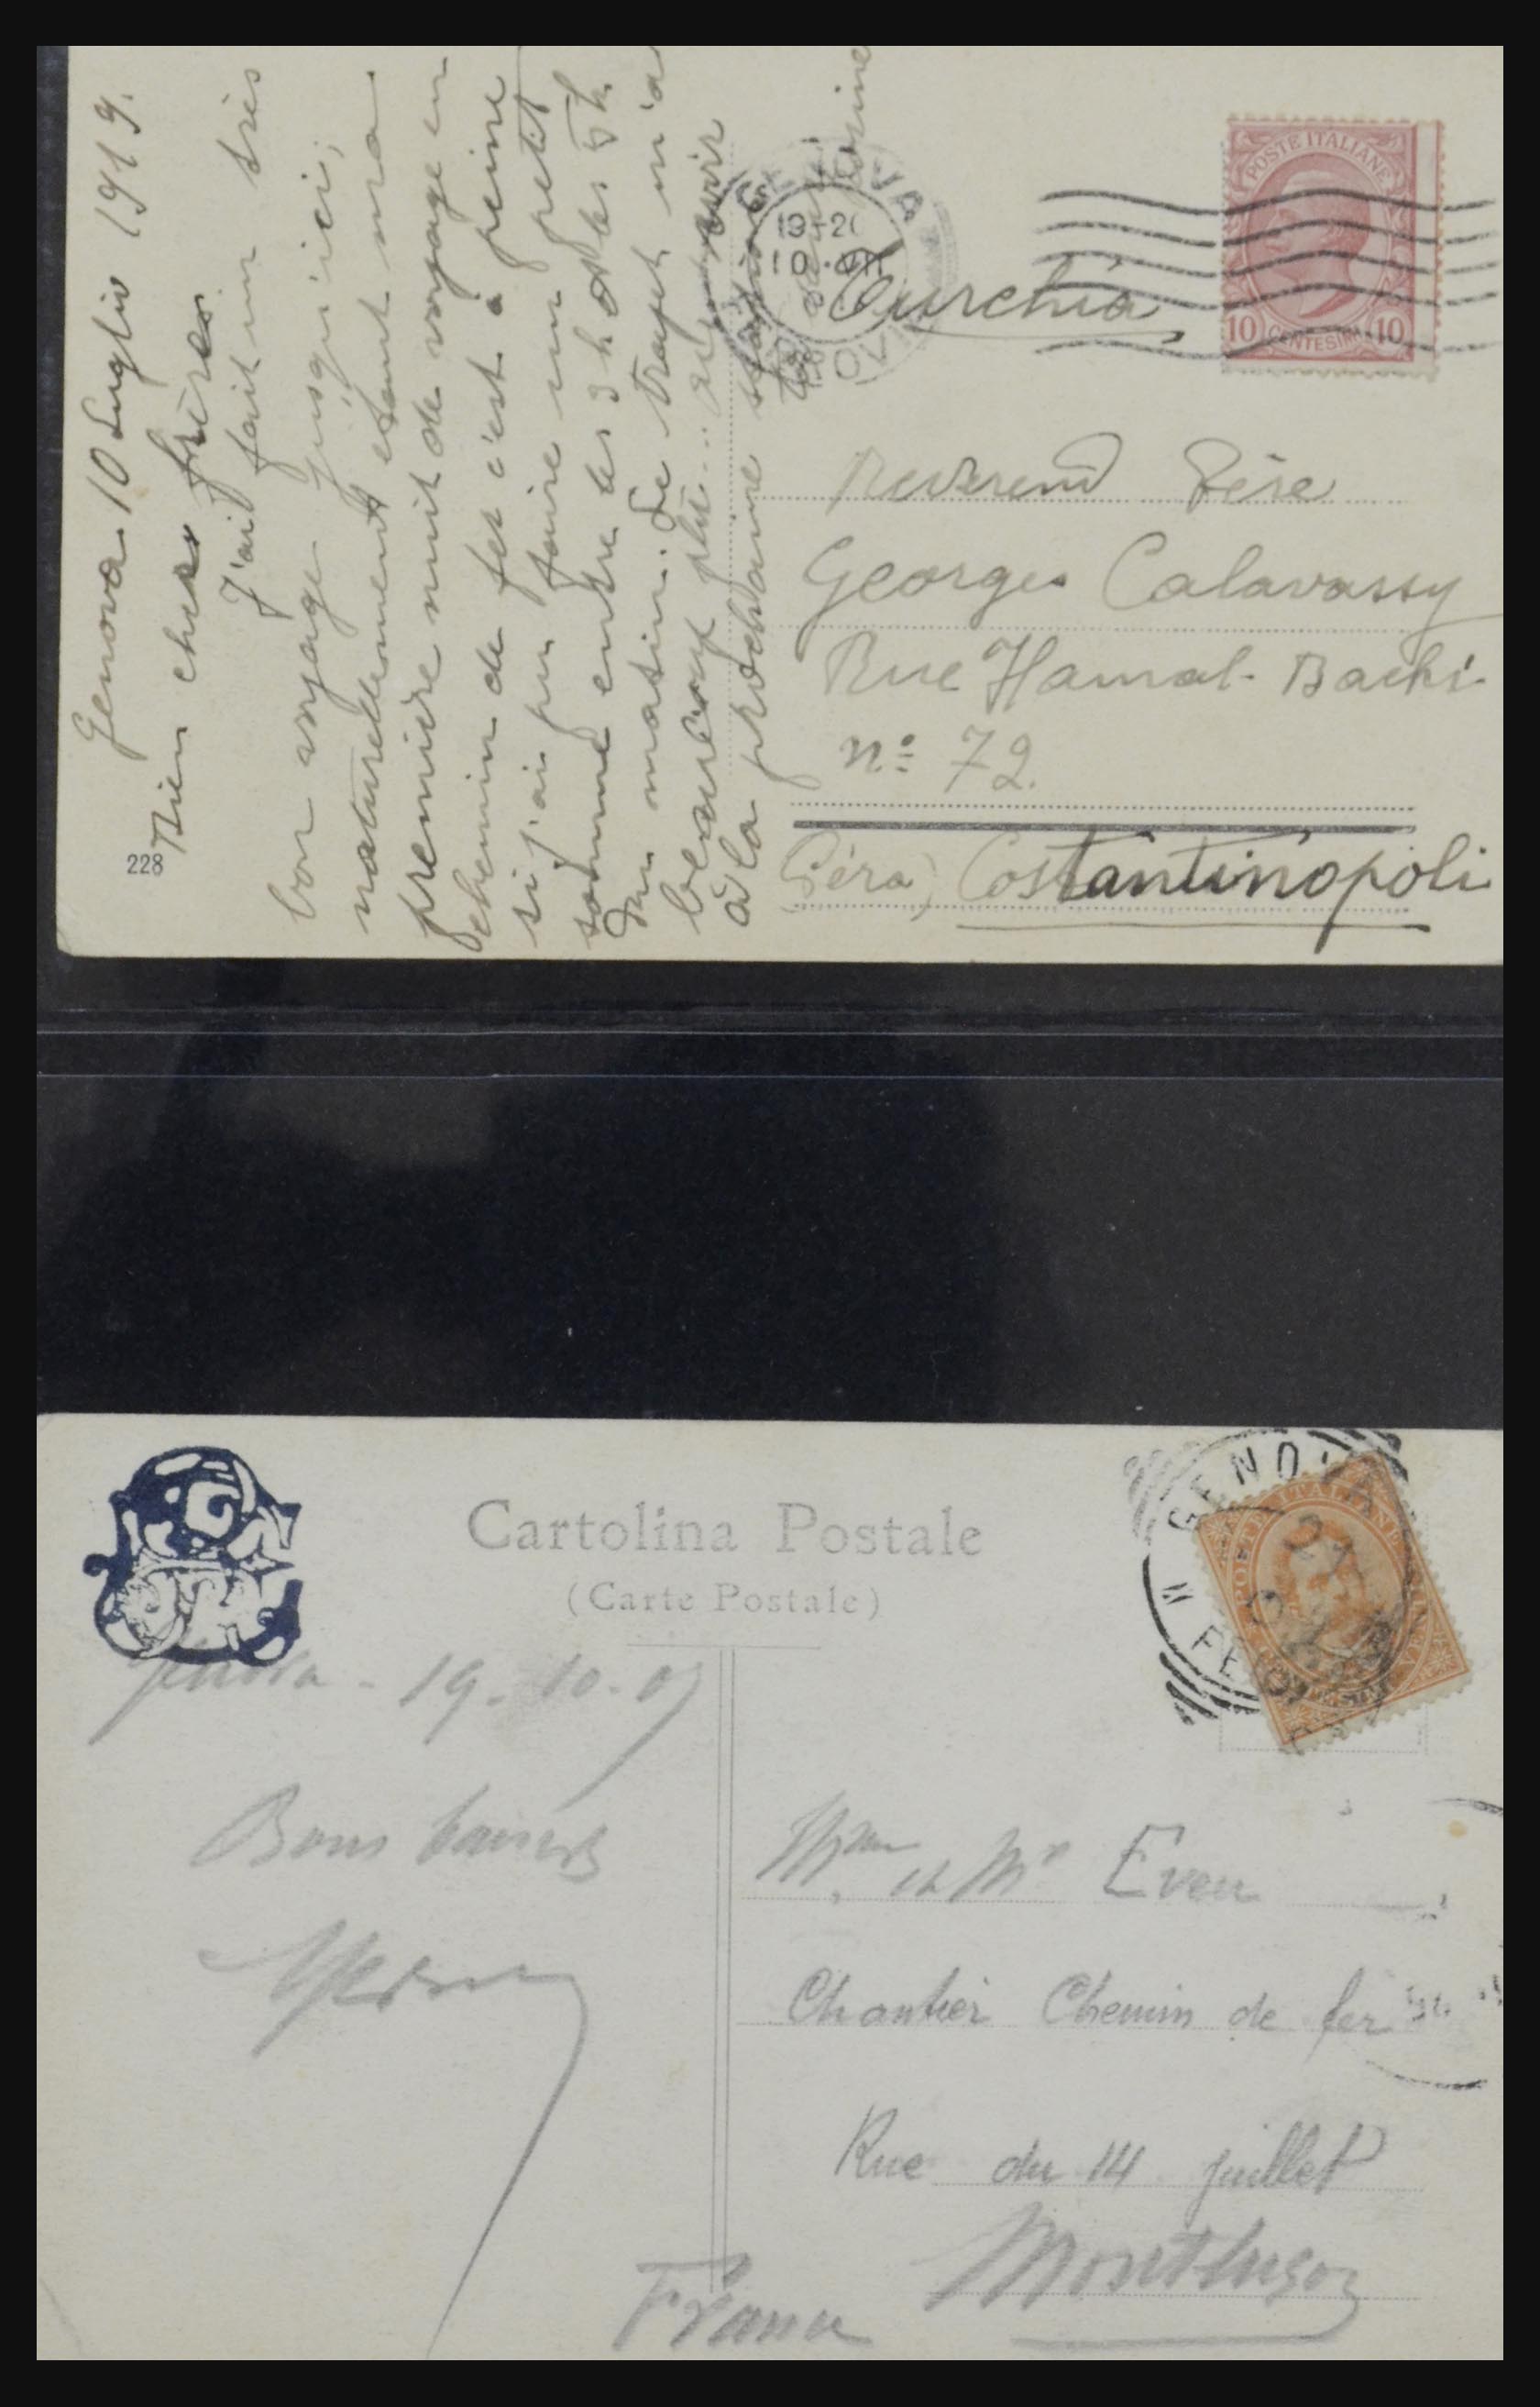 Genova 10 Luglio 1919.
Bien chers frères
J'ai fait un très
bon voyage jusqu'ici,
naturellement étant ma
première nuit de voyage en
chemin de fer c'est à peine
si j'ai pu faire un petit
somme entre les 3h et les 5h
du matin. Le trajet m'a
beaucoup plu... au revoir
à la prochaine
228
GENOVA
19-20
10·VII
Turchia
POSTE ITALIANE
10 CENTESIMI 10
Reverend Père
Georges Calavassy
Rue Hamal-Bachi
nº 72.
(Péra) Costantinopoli
Cartolina Postale
(Carte Postale)
GENOVA
POSTE ITALIANE
Genova - 19-10-07
Bons baisers
Mme et Mr Even
Chantier Chemin de fer
Rue du 14 juillet
Montluçon
France